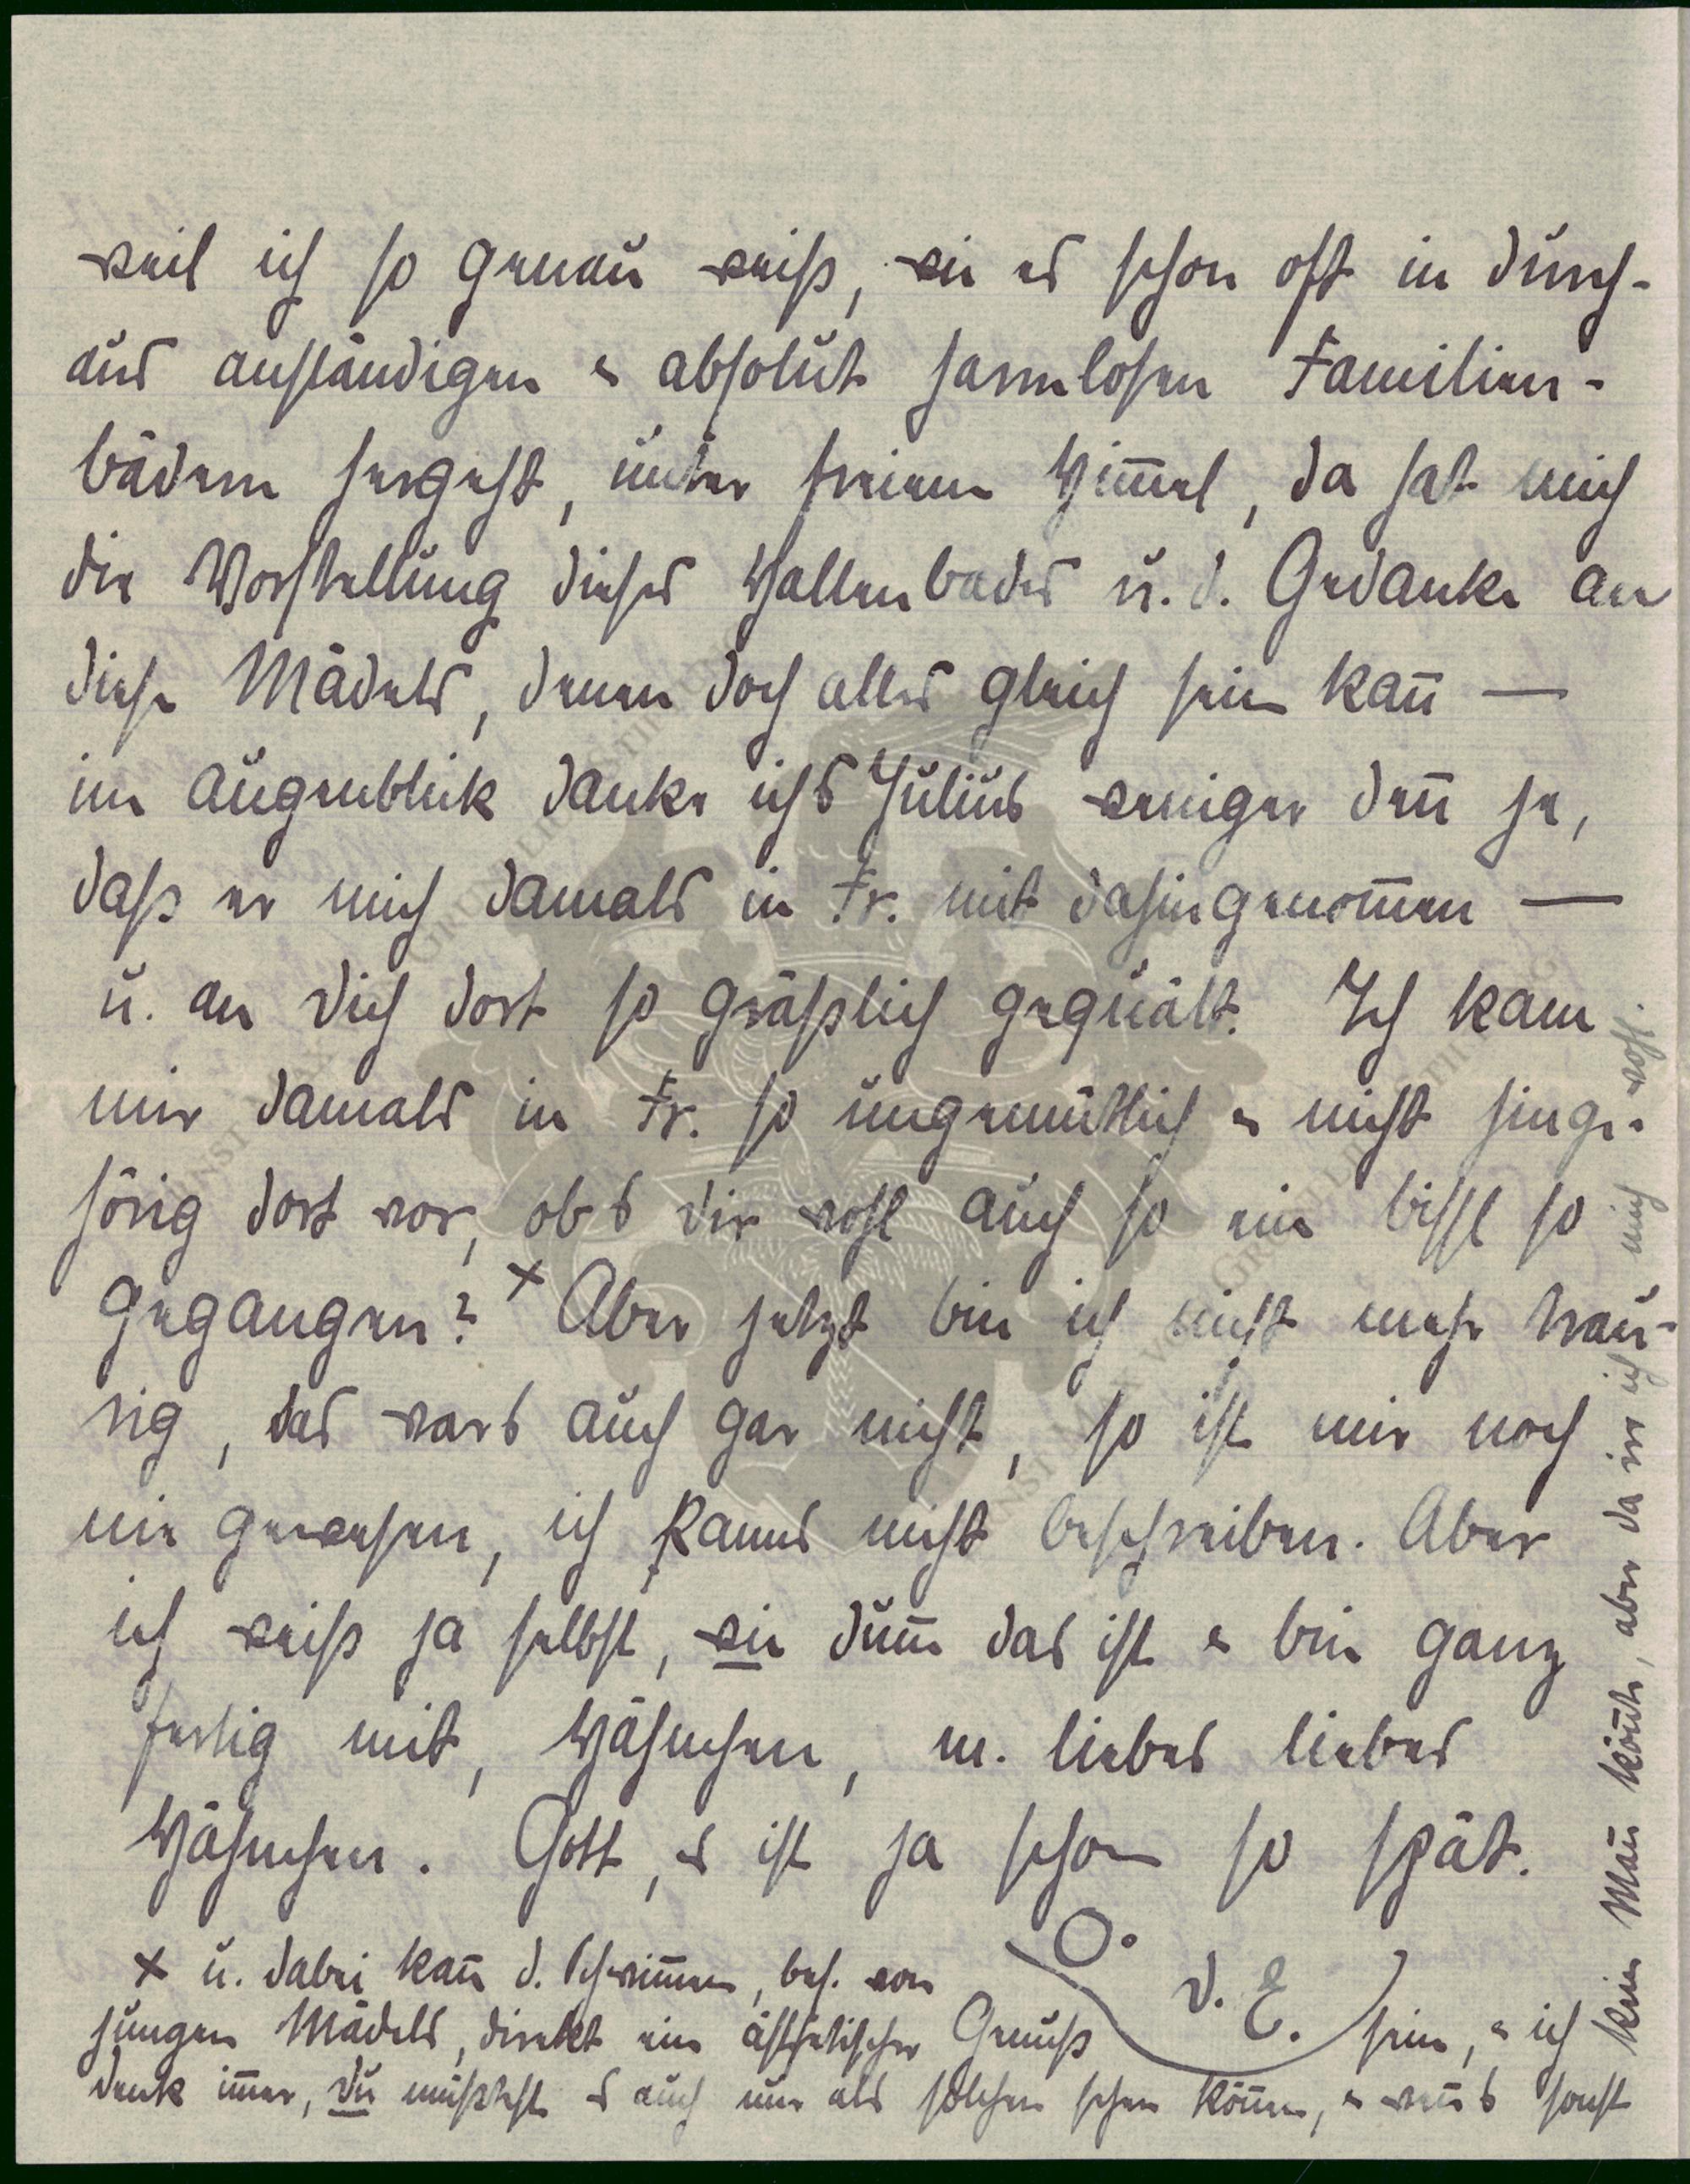 weil ich so genau weiß, wie es schon oft in durch-
aus anständigen & absolut harmlosen Familien-
bädern hergeht, unter freiem Him̄el, da hat mich
die Vorstellung dieses Hallenbades u. d. Gedanke an
diese Mädels, denen doch alles gleich sein kan̄ —
im Augenblick danke ichs Julius weniger den̄ je,
daß er mich damals in Fr. mit dahingenom̄en —
u. an Dich dort so gräßlich gequält. Ich kam
mir damals in Fr. so ungemütlich & nicht hinge-
hörig dort vor, obs Dir wohl auch so ein bissl so
gegangen? × Aber jetzt bin ich nicht mehr trau-
rig, das wars auch gar nicht, so ist mir noch
nie gewesen, ich kanns nicht beschreiben. Aber
ich weiß ja selbst, wie dum̄ das ist & bin ganz
fertig mit, Hähnchen, m. liebes liebes
Hähnchen. Gott, es ist ja schon so spät.
D. E.
× u. dabei kan̄ d. Schwim̄en, bes. von
jungen Mädels, direkt ein ästhetischer Genuß sein, & ich
denk im̄er, Du müßtest es auch nur als solchen sehen kön̄en, & wärs sonst
kein Man̄ kön̄te, aber da irr ich mich wohl.